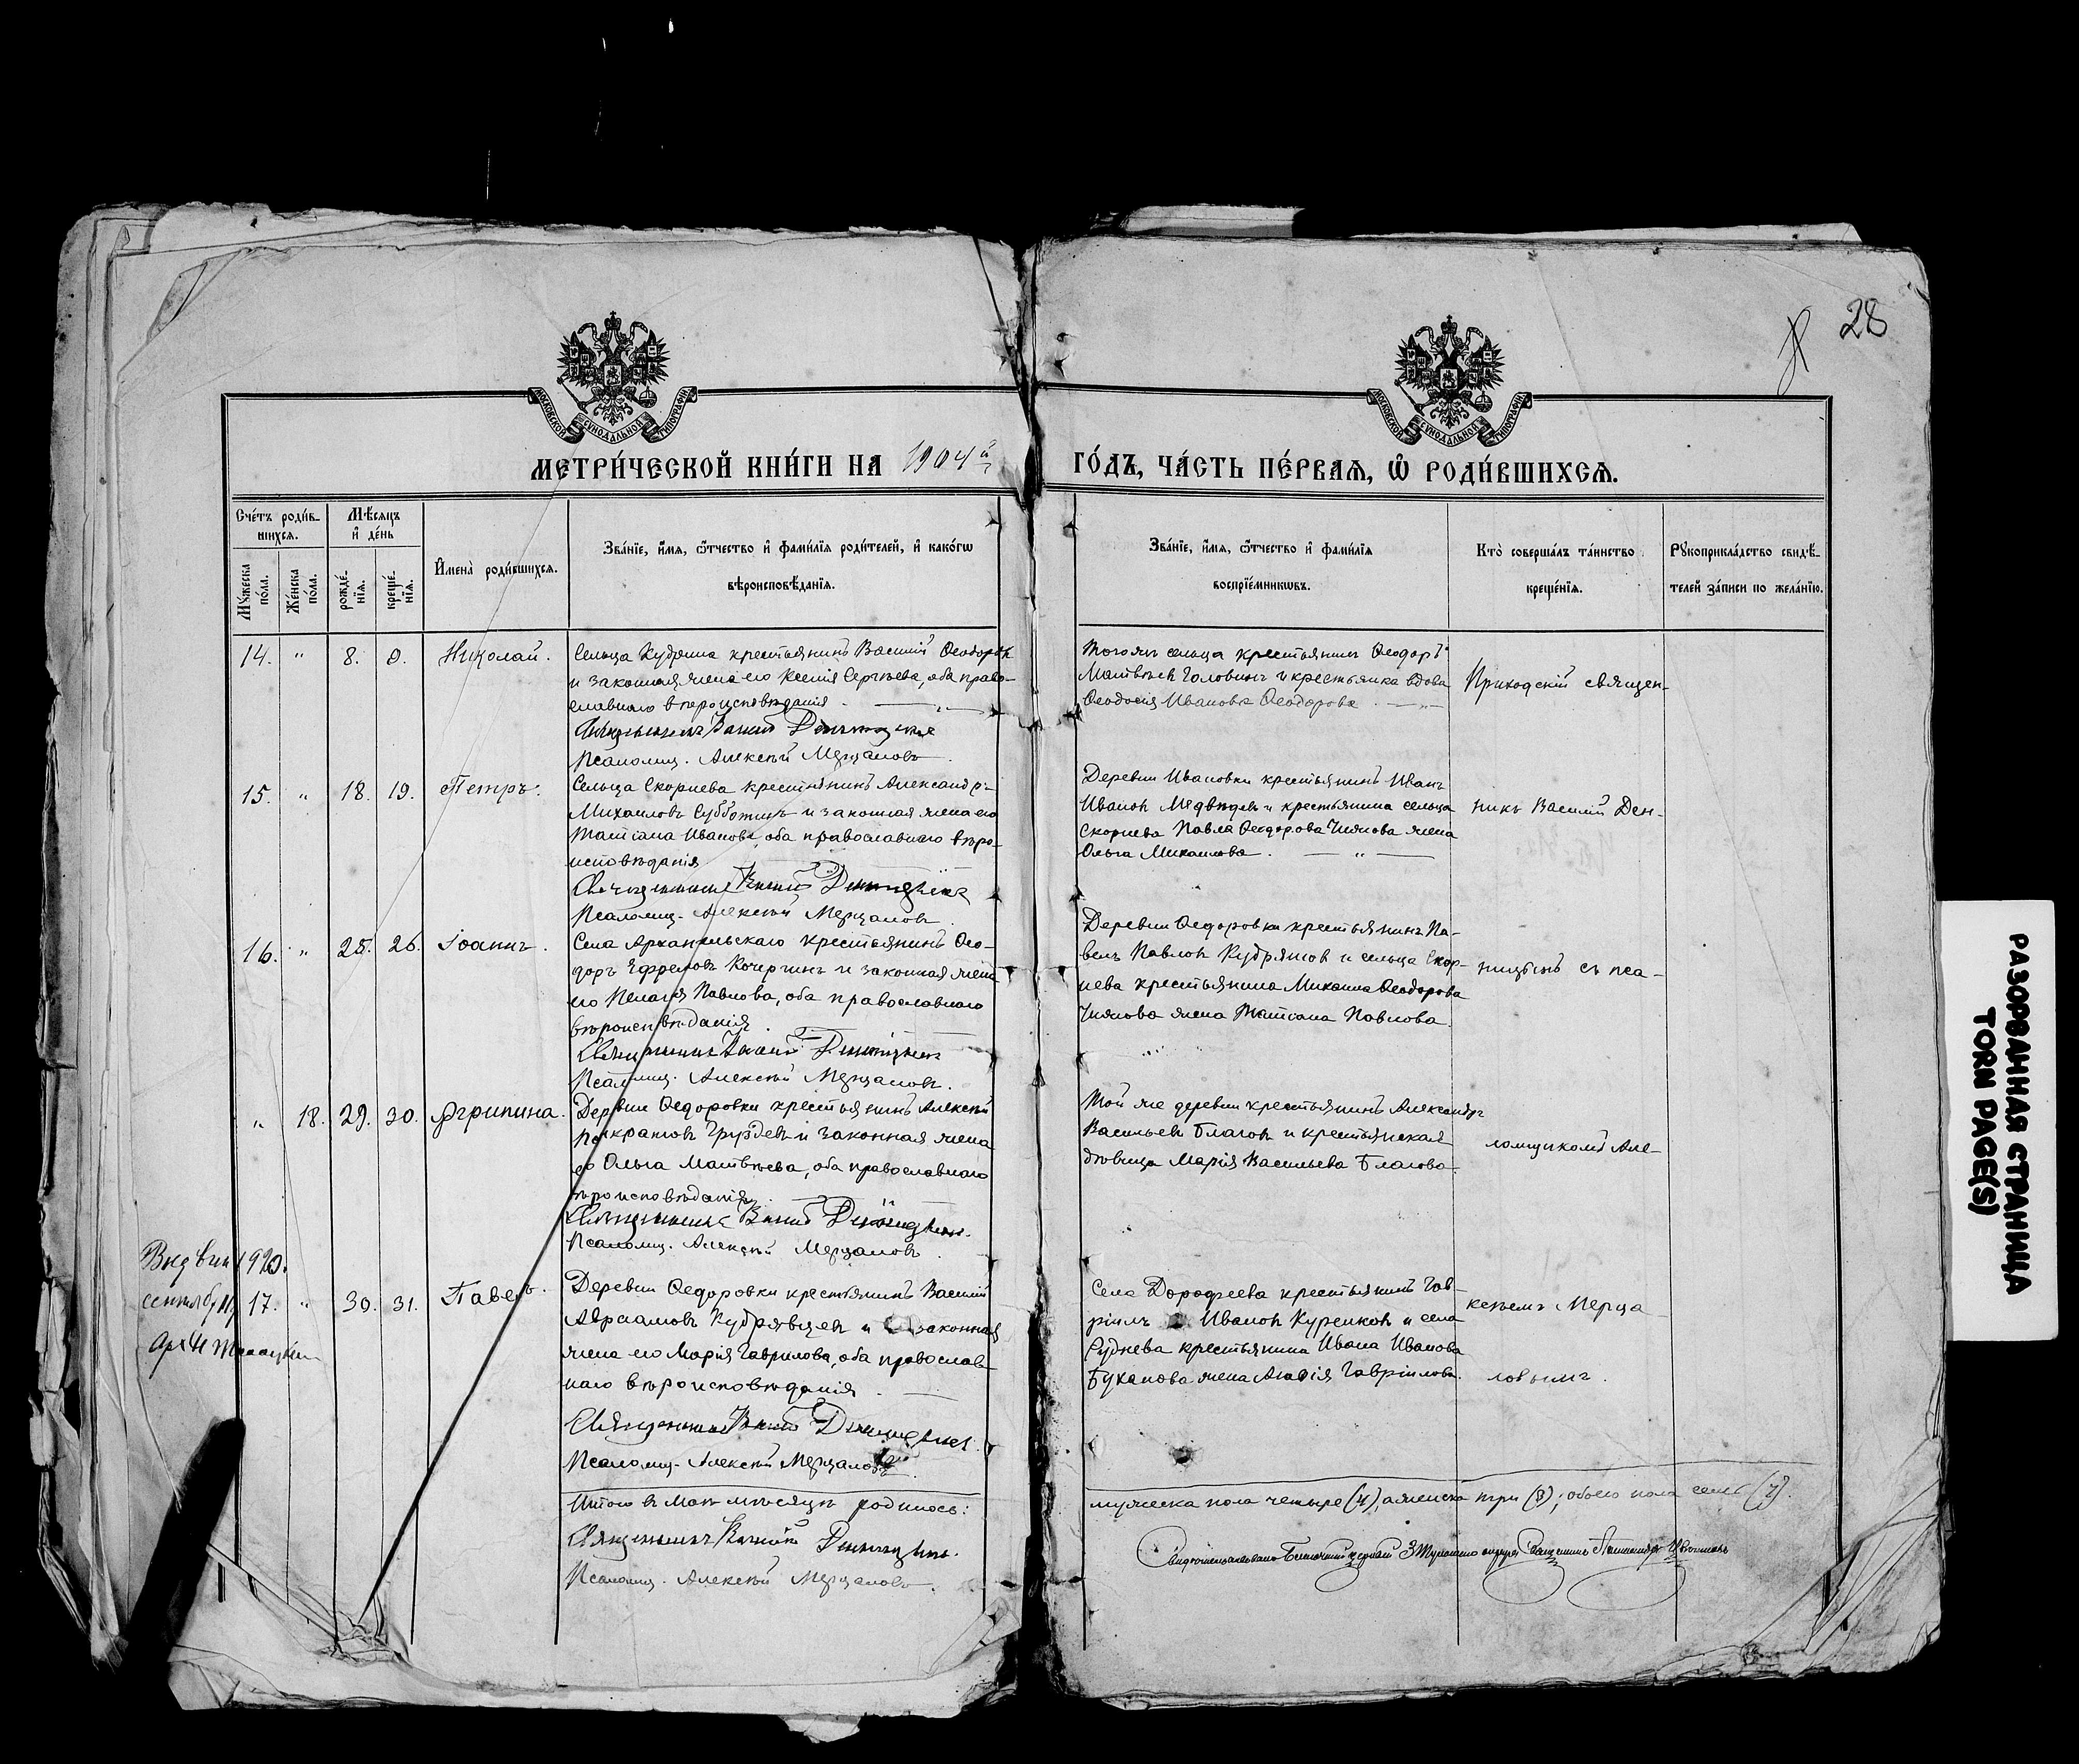 28
МОСКОВСКОЙ СУНОДАЛЬНОЙ ТИПОГРАФІИ
МОСКОВСКОЙ СУНОДАЛЬНОЙ ТИПОГРАФІИ
МЕТРИ́ЧЕСКОЙ КНИ́ГИ НА 1904й ГО́ДЪ, ЧА́СТЬ ПЕ́РВАЯ, Ѡ РОДИ́ВШИХСЯ.
Сче́тъ роди́в-
шихся.
Му́жеска по́ла.
Же́нска по́ла.
Мѣ́сяцъ
и де́нь
рожде́-
нїя.
креще́-
нїя.
Имена̀ роди́вшихся.
Зва́нїе, и́мя, ѻ҆́тчество и фами́лїя роди́телей, и како́гѡ
вѣроисповѣ́данїя.
Зва́нїе, и́мя, ѻ҆́тчество и фами́лїя
воспрїе́мникѡвъ.
Кто̀ соверша́лъ та́инство
креще́нїя.
Рꙋкоприкла́дство свидѣ́-
телей за́писи по жела́нїю.
14. " 8. 9. Николай.
Сельца Кудряша крестьянинъ Василій Ѳеодоровъ
и законная жена его Ксенія Сергѣева, оба право-
славнаго вѣроисповѣданія.
Священникъ Василій Деницынъ
Псаломщ. Алексѣй Мерцаловъ.
Тогожъ сельца крестьянинъ Ѳеодоръ
Матвѣевъ Головинъ и крестьянка вдова
Ѳеодосія Иванова Ѳеодорова.
Приходскій священ-
15. " 18. 19. Петръ.
Сельца Скорнева крестьянинъ Александръ
Михаиловъ Субботинъ и законная жена его
Татіана Иванова, оба православнаго вѣро-
исповѣданія
Священникъ Василій Деницынъ
Псаломщ. Алексѣй Мерцаловъ.
Деревни Ивановки крестьянинъ Иванъ
Ивановъ Медвѣдевъ и крестьянина сельца
Скорнева Павла Ѳеодорова Чижова жена
Ольга Михаилова.
никъ Василій Ден-
16. " 25. 26. Іоаннъ.
Села Архангельскаго крестьянинъ Ѳео-
доръ Ефремовъ Кочергинъ и законная жена
его Пелагія Павлова, оба православнаго
вѣроисповѣданія.
Священникъ Василій Деницынъ
Псаломщ. Алексѣй Мерцаловъ.
Деревни Ѳедоровки крестьянинъ Па-
велъ Павловъ Кудряшовъ и сельца Скор-
нева крестьянина Михаила Ѳеодорова
Чижова жена Татіана Павлова.
ницынъ съ пса-
" 18. 29. 30. Агрипина.
Деревни Ѳедоровки крестьянинъ Алексѣй
Панкратовъ Груздевъ и законная жена
его Ольга Матвѣева, оба православнаго
вѣроисповѣданія.
Священникъ Василій Деницынъ.
Псаломщ. Алексѣй Мерцаловъ.
Той же деревни крестьянинъ Александръ
Васильевъ Благовъ и крестьянская
дѣвица Марія Васильева Благова.
ломщикомъ Але-
1920.
сентябр
17. " 30. 31. Павелъ.
Деревни Ѳедоровки крестьянинъ Василій
Авраамовъ Кудрявцевъ и законная
жена его Марія Гаврилова, оба православ-
наго вѣроисповѣданія.
Священникъ Василій Деницынъ.
Псаломщ. Алексѣй Мерцаловъ.
Села Дорофеева крестьянинъ Гав-
ріилъ Ивановъ Куренковъ и села
Руднева крестьянина Ивана Иванова
Буханова жена Гавріилова.
ксѣемъ Мерца
ловымъ.
Итого въ маѣ мѣсяцѣ родилось:
мужеска пола четыре (4), а женска три (3); обоего пола семь (7).
Священникъ Василій Деницынъ.
Псаломщ. Алексѣй Мерцаловъ.
РАЗОРВАННАЯ СТРАНИЦА
TORN PAGE(S)